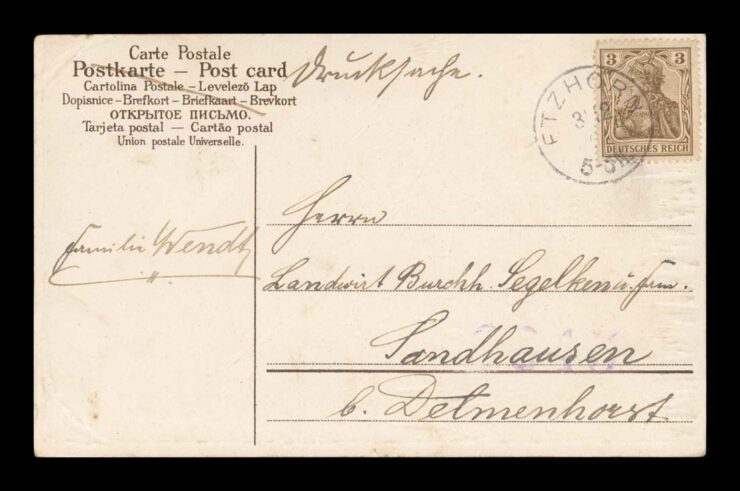 Carte Postale
Postkarte — Post card
Cartolina Postale – Levelező Lap
Dopisnice – Brefkort – Briefkaart – Brevkort
ОТКРЫТОЕ ПИСЬМО.
Tarjeta postal — Cartão postal
Union postale Universelle.
Drucksache.
3 3
DEUTSCHES REICH
ETZHORN
5-6N
Herrn
Familie Wendt
Landwirt Burchh. Segelken u. Fam.
Sandhausen
b. Delmenhorst.